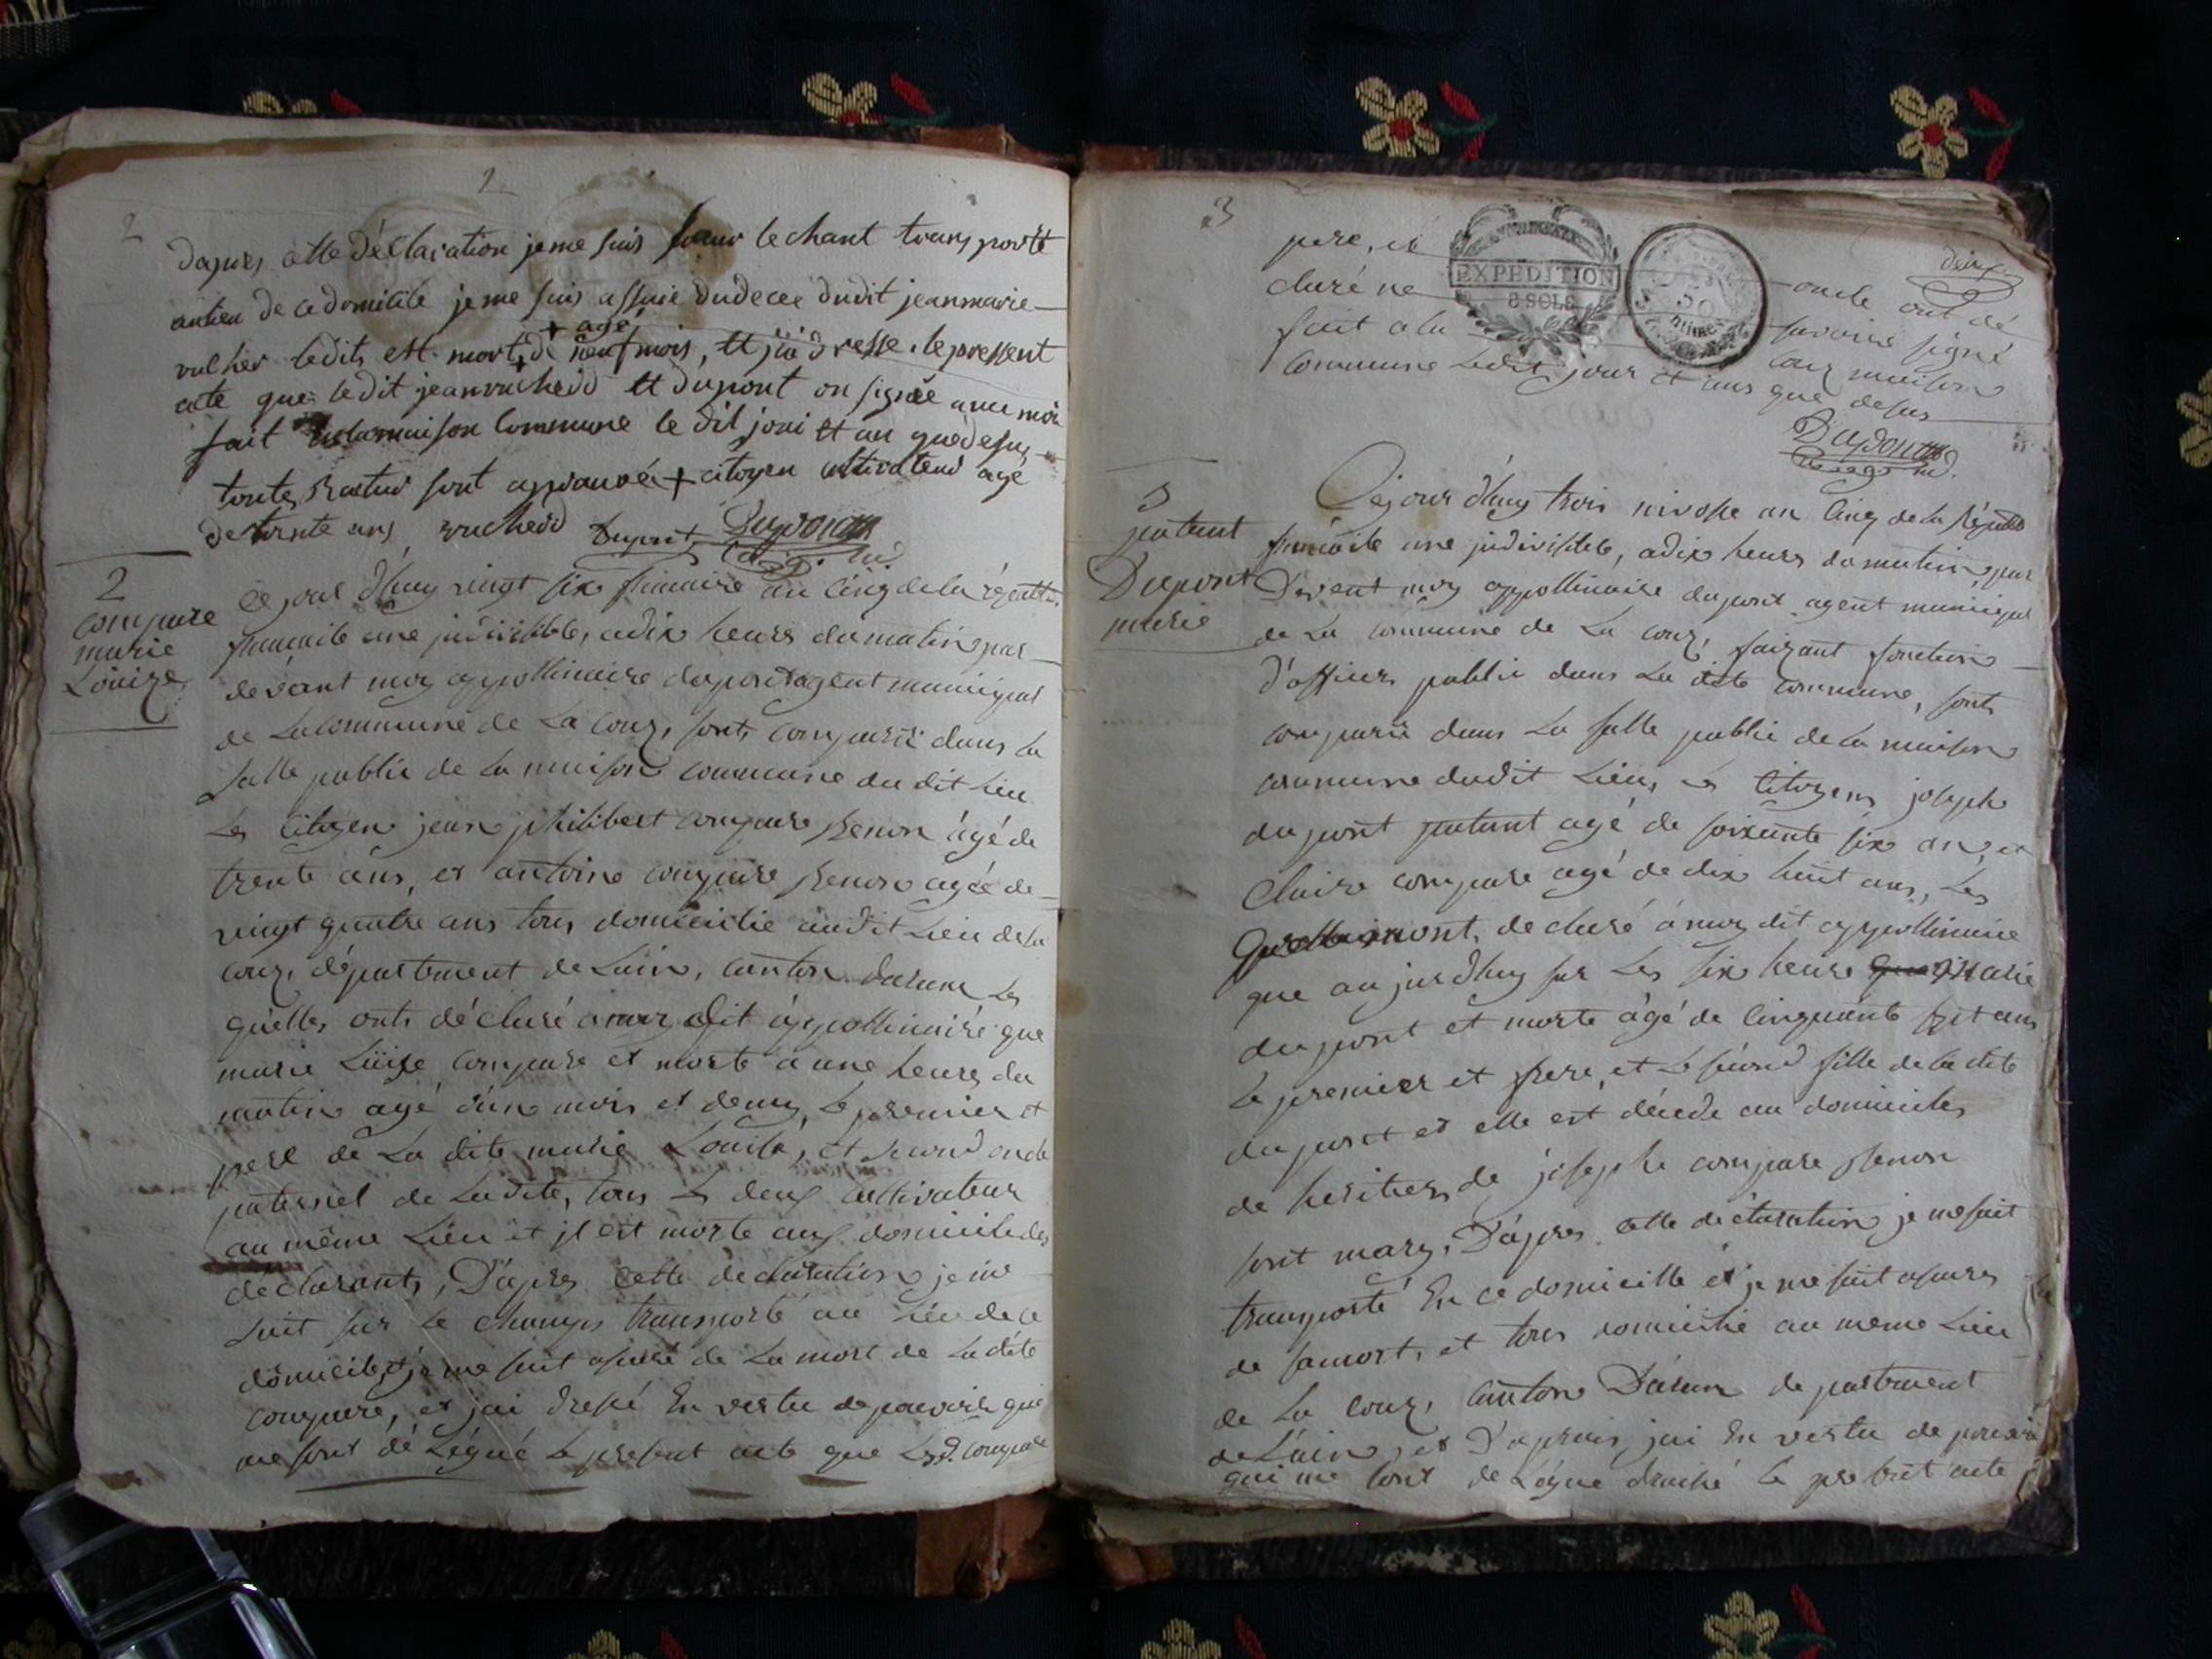 2
2
dapres cette déClaration je me suis sur le chant transporté
au lieu de ce domicile je me suis assuré du decee dudit jean marie
vulher ledit, est mort, + agé de neuf mois, et jai dresse le pressent
acte que ledit jean rucherd et dupont on signée avec moi
fait en la maison Commune le dit jour et an que desus
toute Ratur sont approuvée + citoyen cultivateur agé
de trente ans rucherd dupont Dupont
agt. m.
2
compare
marie
Louize
Ce jour d'huy vingt six frimaire an cinq de la républi.
francaise une indivisible, a dix heurs du matin par
devant moy appollinaire dupont agent municipal
de la commune de La coux, sont comparû dans la
salle public de la maison commune du dit lieu
Les citoyen jean philibert compare Renon âgé de
trente ans, et antoine compare Renon agée de
vingt quatre ans tous domicilie audit Lieu de la
coux, département de Lain, canton darum les
quelles onts déclaré a moy dit appollinaire que
marie Luize compare et morte a une heure du
matin agé d'un mois et demy, le premier et
pere de La dite marie Louise, et second oncle
paternel de Ladite, tous les deux cultivateur
au même Lieu et jl est morte aux domicile des
déclarants, D'apres Cette declaration je me
suit sur le champs transporté au Lieu de ce
domicile, et je me suit assuré de La mort de La dite
compare, et jai dressé En vertu de pouvoirs qui
me sont délégué le present acte que Lesd. compare
3
deux
pere, et oncle ont dé
EXPEDITION
8 SOLS
claré ne savoire signé
fait a la coux maison
commune Ledit jour et ans que desus
Dupont
agt m.
3
patent
Dupont
marie
Cejour d'huy trois nivose an cinq de la Répub
francaise une jndivisible, a dix heurs du matin, par
Devent moy appollinaire dupont agent municipal
de La commune de La coux, faizant fonction
d'officier public dans La dite commune, sont
comparû dans La salle public de la maison
commune dudit Lieu, Les Citoyens joseph
dupont patent agé de soixante six an, et
Claire compare agé de dix huit ans, Les
quelles mont, declaré a moy dit appollinaire
que aujourdhuy sur les six heure marie
dupont et morte âgé de cinquante sept ans
Le premier et frere, et Le second fille de la dite
dupont et elle est décede au domicile
de heritier de joseph compare Renon
sont mary, D'apres cette déclaration je me suit
transporté En ce domicille et je me suit assures
de sa mort, et tous domicilie au meme Lieu
de La coux, canton Darum departement
de L'ain, et D'apres jai En vertu de pouvoir
qui me sont delégue dressé Le present acte